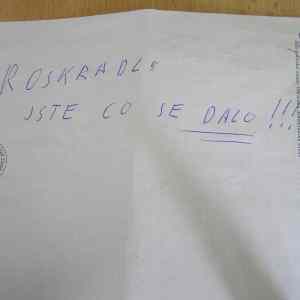 ROSKRADLI
JSTE CO SE DALO!!!